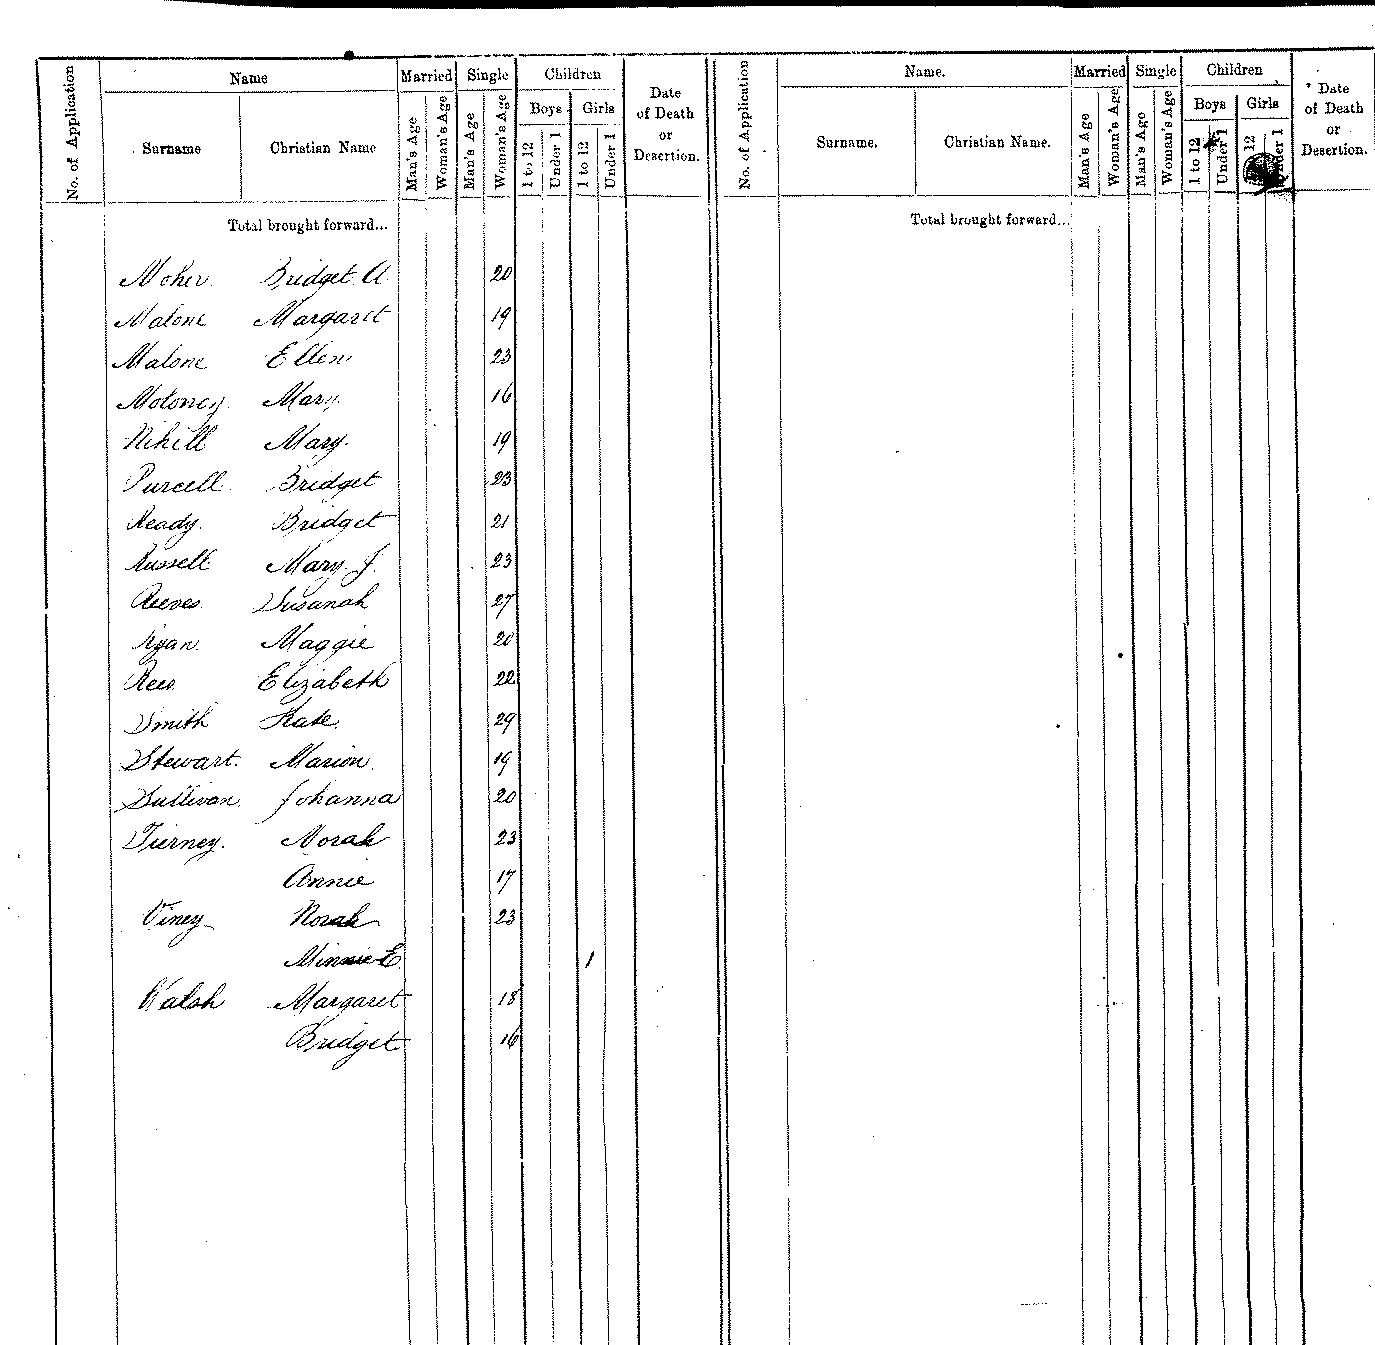 No. of Application Name Married Single Children Date of Death or Desertion.
Surname Christian Name Man's Age Woman's Age Man's Age Woman's Age Boys Girls
1 to 12 Under 1 1 to 12 Under 1
Total brought forward...
Moher. Bridget A. 20
Malone Margaret 19
Malone Ellen 23
Moloney. Mary 16
Nihill Mary. 19
Purcell Bridget 23
Ready. Bridget 21
Russell Mary J. 23
Reeves. Susanah 27
Ryan. Maggie 20
Rees Elizabeth 22
Smith Kate. 29
Stewart. Marion. 19
Sullivan. Johanna 20
Tierney. Norah 23
Annie 17
Viney Norah 23
Minnie E. 1
Walsh Margaret 18
Bridget 16
No. of Application Name. Married Single Children Date of Death or Desertion.
Surname. Christian Name. Man's Age Woman's Age Man's Age Woman's Age Boys Girls
1 to 12 Under 1 12 Under 1
Total brought forward...